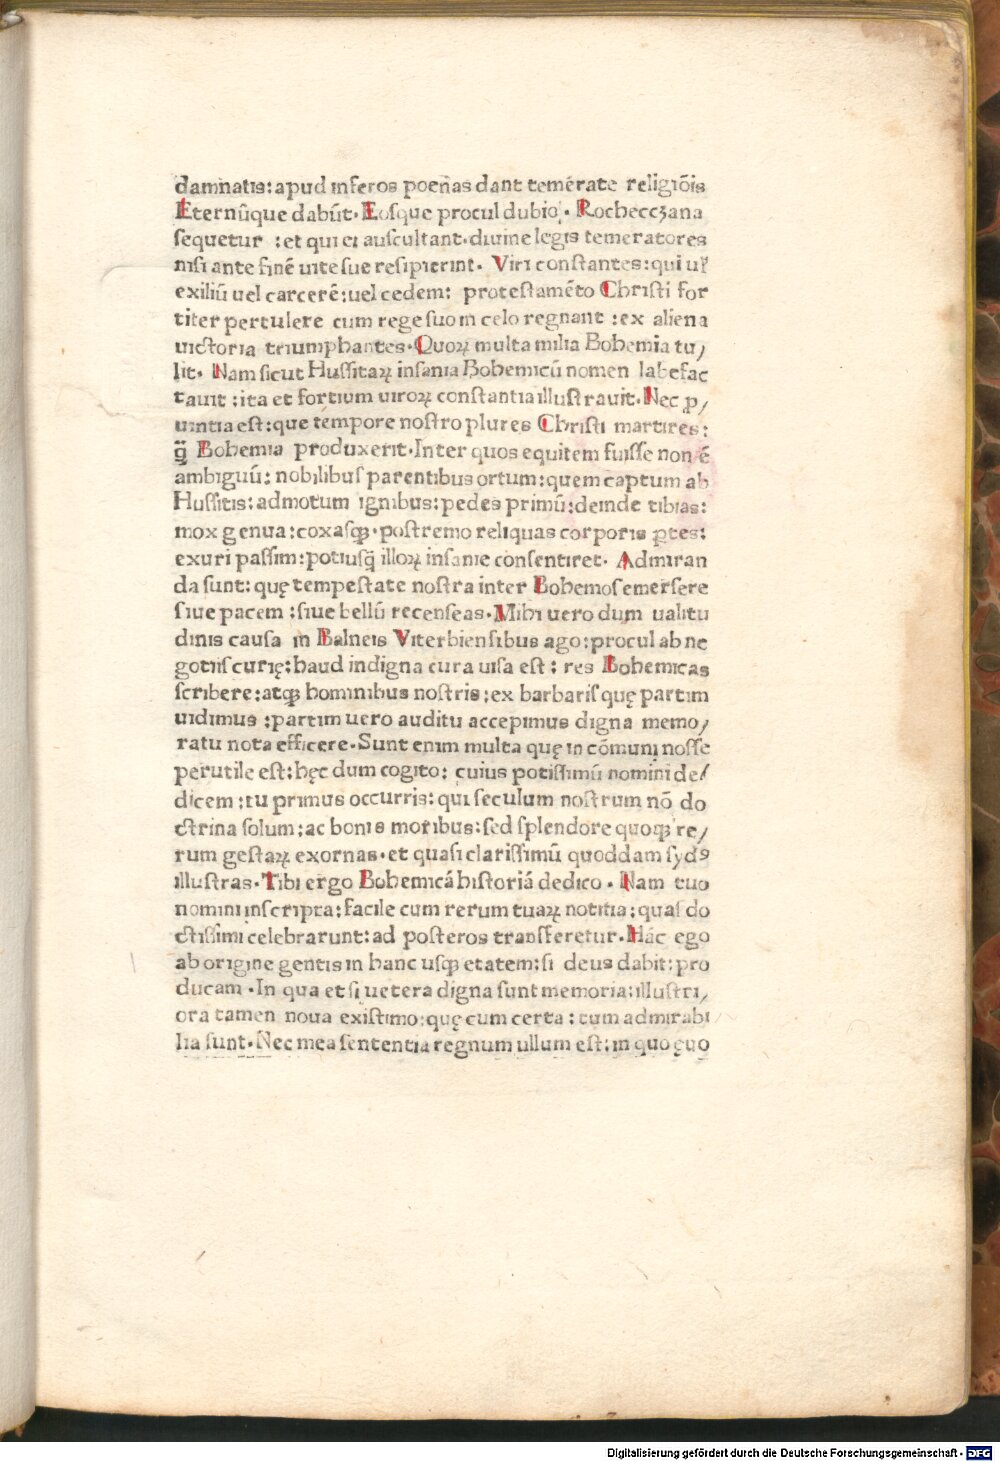 damnatis: apud inferos poenas dant temerate religiõis
Eternũque dabũt. Eosque procul dubio. Rocheczana
sequetur : et qui ei auscultant. diuine legis temeratores
nisi ante finẽ uite sue resipierint. Viri constantes: qui ul'
exiliũ uel carcerẽ: uel cedem: pro testamẽto Christi for
titer pertulere cum rege suo in celo regnant : ex aliena
uictoria triumphantes. Quoꝝ multa milia Bohemia tu/
lit. Nam sicut Hussitaꝝ insania Bohemicũ nomen labefac
tauit : ita et fortium uiroꝝ constantia illustrauit. Nec ꝓ/
uintia est: que tempore nostro plures Christi martires:
q̃ Bohemia produxerit. Inter quos equitem fuisse non ẽ
ambiguũ: nobilibus parentibus ortum: quem captum ab
Hussitis: admotum ignibus: pedes primũ: deinde tibias:
mox genua: coxasqꝫ. postremo reliquas corporis ꝑtes:
exuri passim: potiusq̃ illoꝝ insanie consentiret. Admiran
da sunt: quę tempestate nostra inter Bohemos emersere
siue pacem : siue bellũ recenseas. Mihi uero dum ualitu
dinis causa in Balneis Viterbiensibus ago: procul ab ne
gotiis curię: haud indigna cura uisa est: res Bohemicas
scribere: atqꝫ hominibus nostris: ex barbaris quę partim
uidimus : partim uero auditu accepimus digna memo/
ratu nota efficere. Sunt enim multa quę in cõmuni nosse
perutile est: hęc dum cogito: cuius potissimũ nomini de/
dicem : tu primus occurris: qui seculum nostrum nõ do
ctrina solum: ac bonis moribus: sed splendore quoqꝫ re/
rum gestaꝝ exornas. et quasi clarissimũ quoddam sydꝰ
illustras. Tibi ergo Bohemicã historiã dedico. Nam tuo
nomini inscripta: facile cum rerum tuaꝝ notitia: quas do
ctissimi celebrarunt: ad posteros transferetur. Hãc ego
ab origine gentis in hanc usqꝫ etatem: si deus dabit: pro
ducam. In qua et si uetera digna sunt memoria: illustri/
ora tamen noua existimo: quę cum certa: tum admirabi
lia sunt. Nec mea sententia regnum ullum est: in quo ęuo
Digitalisierung gefördert durch die Deutsche Forschungsgemeinschaft - DFG